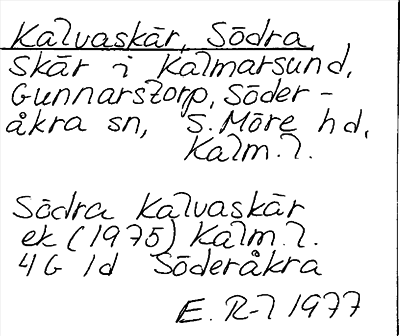 Kalvaskär, Södra
Skär i Kalmarsund,
Gunnarstorp, Söder-
åkra sn, S. Möre hd,
Kalm. l.
Södra Kalvaskär
ek (1975) Kalm. l.
4G 1d Söderåkra
E. R-l 1977